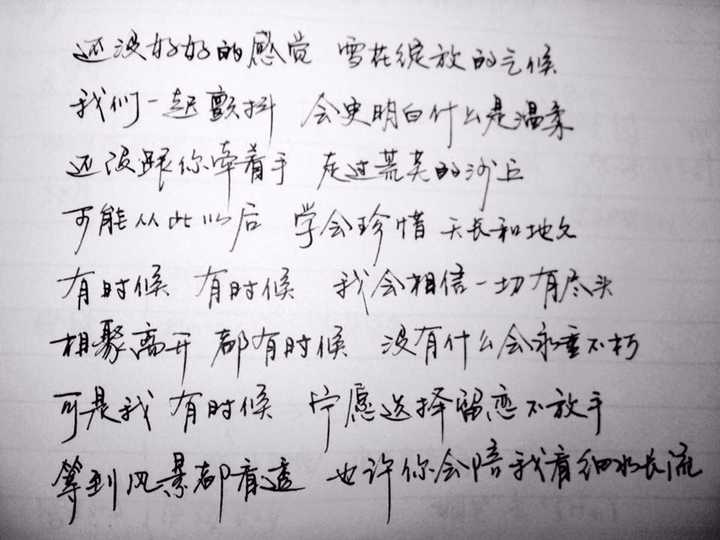 还没好好的感觉 雪花绽放的气候
我们一起颤抖 会更明白什么是温柔
还没跟你牵着手 走过荒芜的沙丘
可能从此以后 学会珍惜 天长和地久
有时候 有时候 我会相信一切有尽头
相聚离开 都有时候 没有什么会永垂不朽
可是我 有时候 宁愿选择留恋不放手
等到风景都看透 也许你会陪我看细水长流